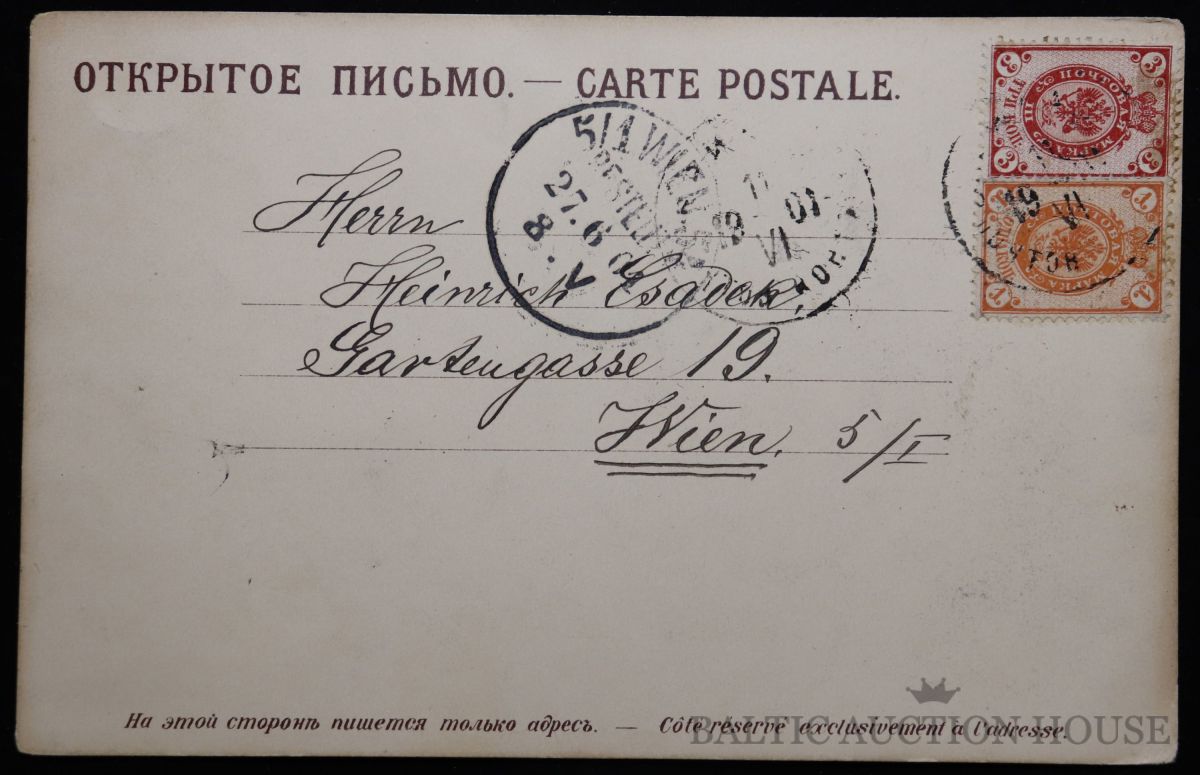 ОТКРЫТОЕ ПИСЬМО. — CARTE POSTALE.
3 ПОЧТОВАЯ МАРКА 3
3 3
1 МАРКА 1
1 1
5/1 WIEN
BESTELLT
27. 6
8. V
VI 01
19 VI
Herrn
Heinrich
Gartengasse 19.
Wien. 5/I
На этой сторонѣ пишется только адресъ. — Côté réservé exclusivement à l'adresse.
BALTIC AUCTION HOUSE